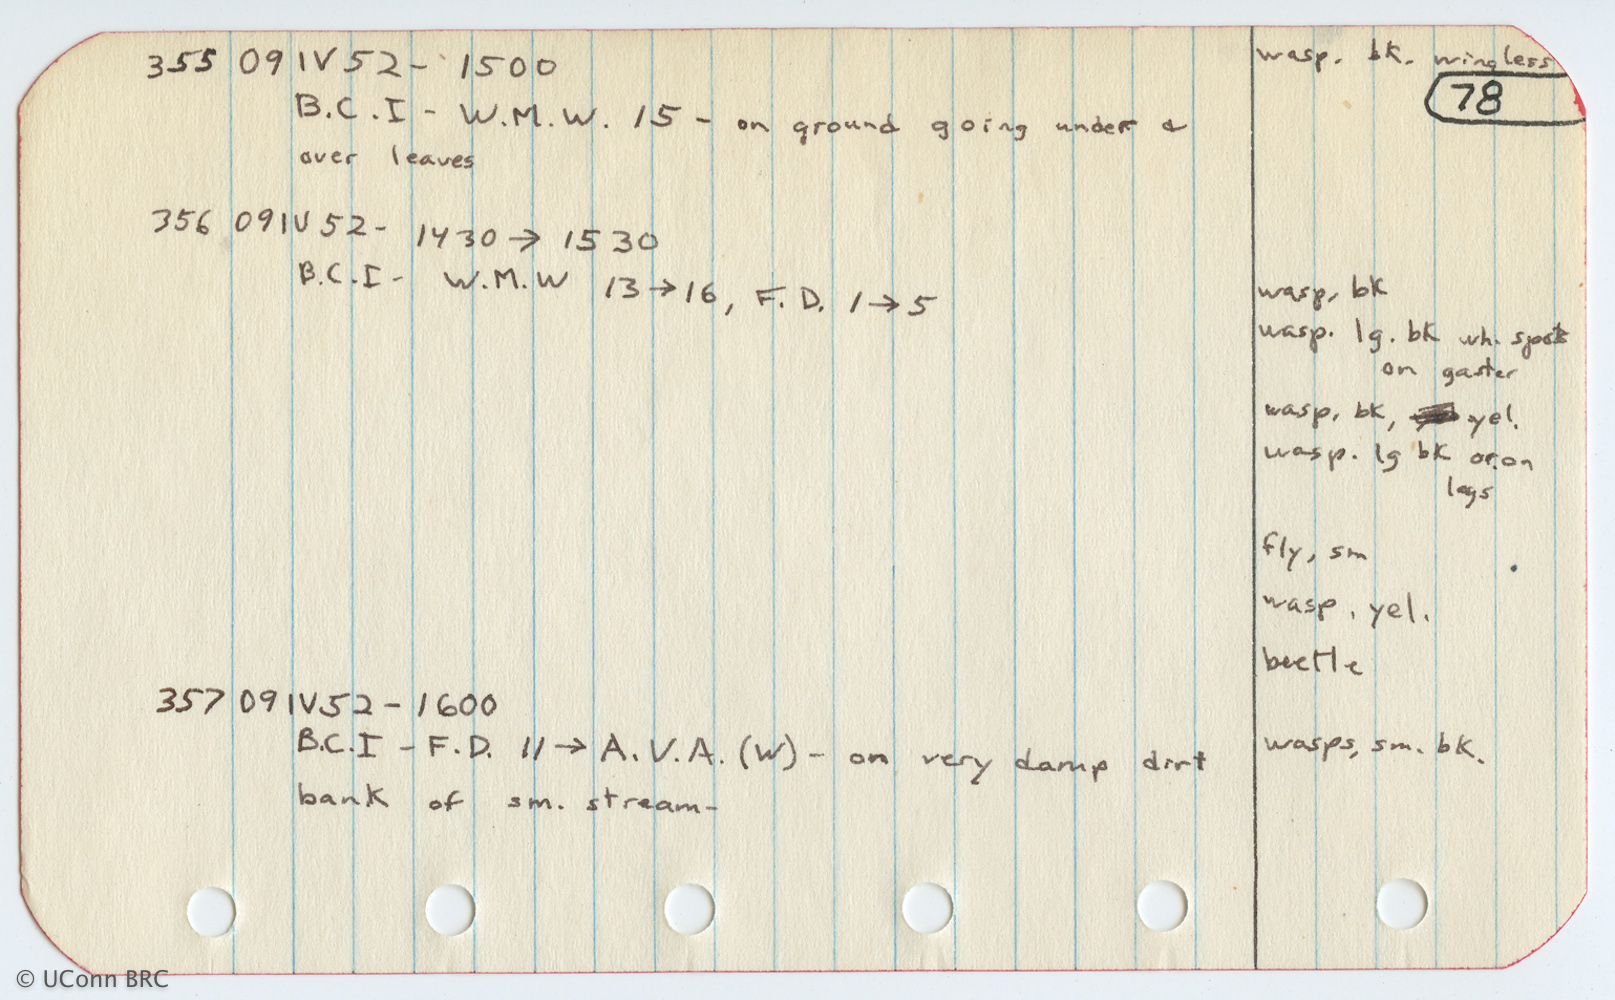 355 09 IV 52 - 1500
wasp. bk. wingless
78
B.C.I - W.M.W. 15 - on ground going under &
over leaves
356 09 IV 52 - 1430 → 1530
B.C.I - W.M.W 13 → 16, F.D. 1 → 5
wasp, bk
wasp. lg. bk wh. spots
on gaster
wasp, bk, yel.
wasp. lg bk or. on
legs
fly, sm
wasp, yel.
beetle
357 09 IV 52 - 1600
B.C.I - F.D. 11 → A.V.A. (W) - on very damp dirt
bank of sm. stream -
wasps, sm. bk.
© UConn BRC